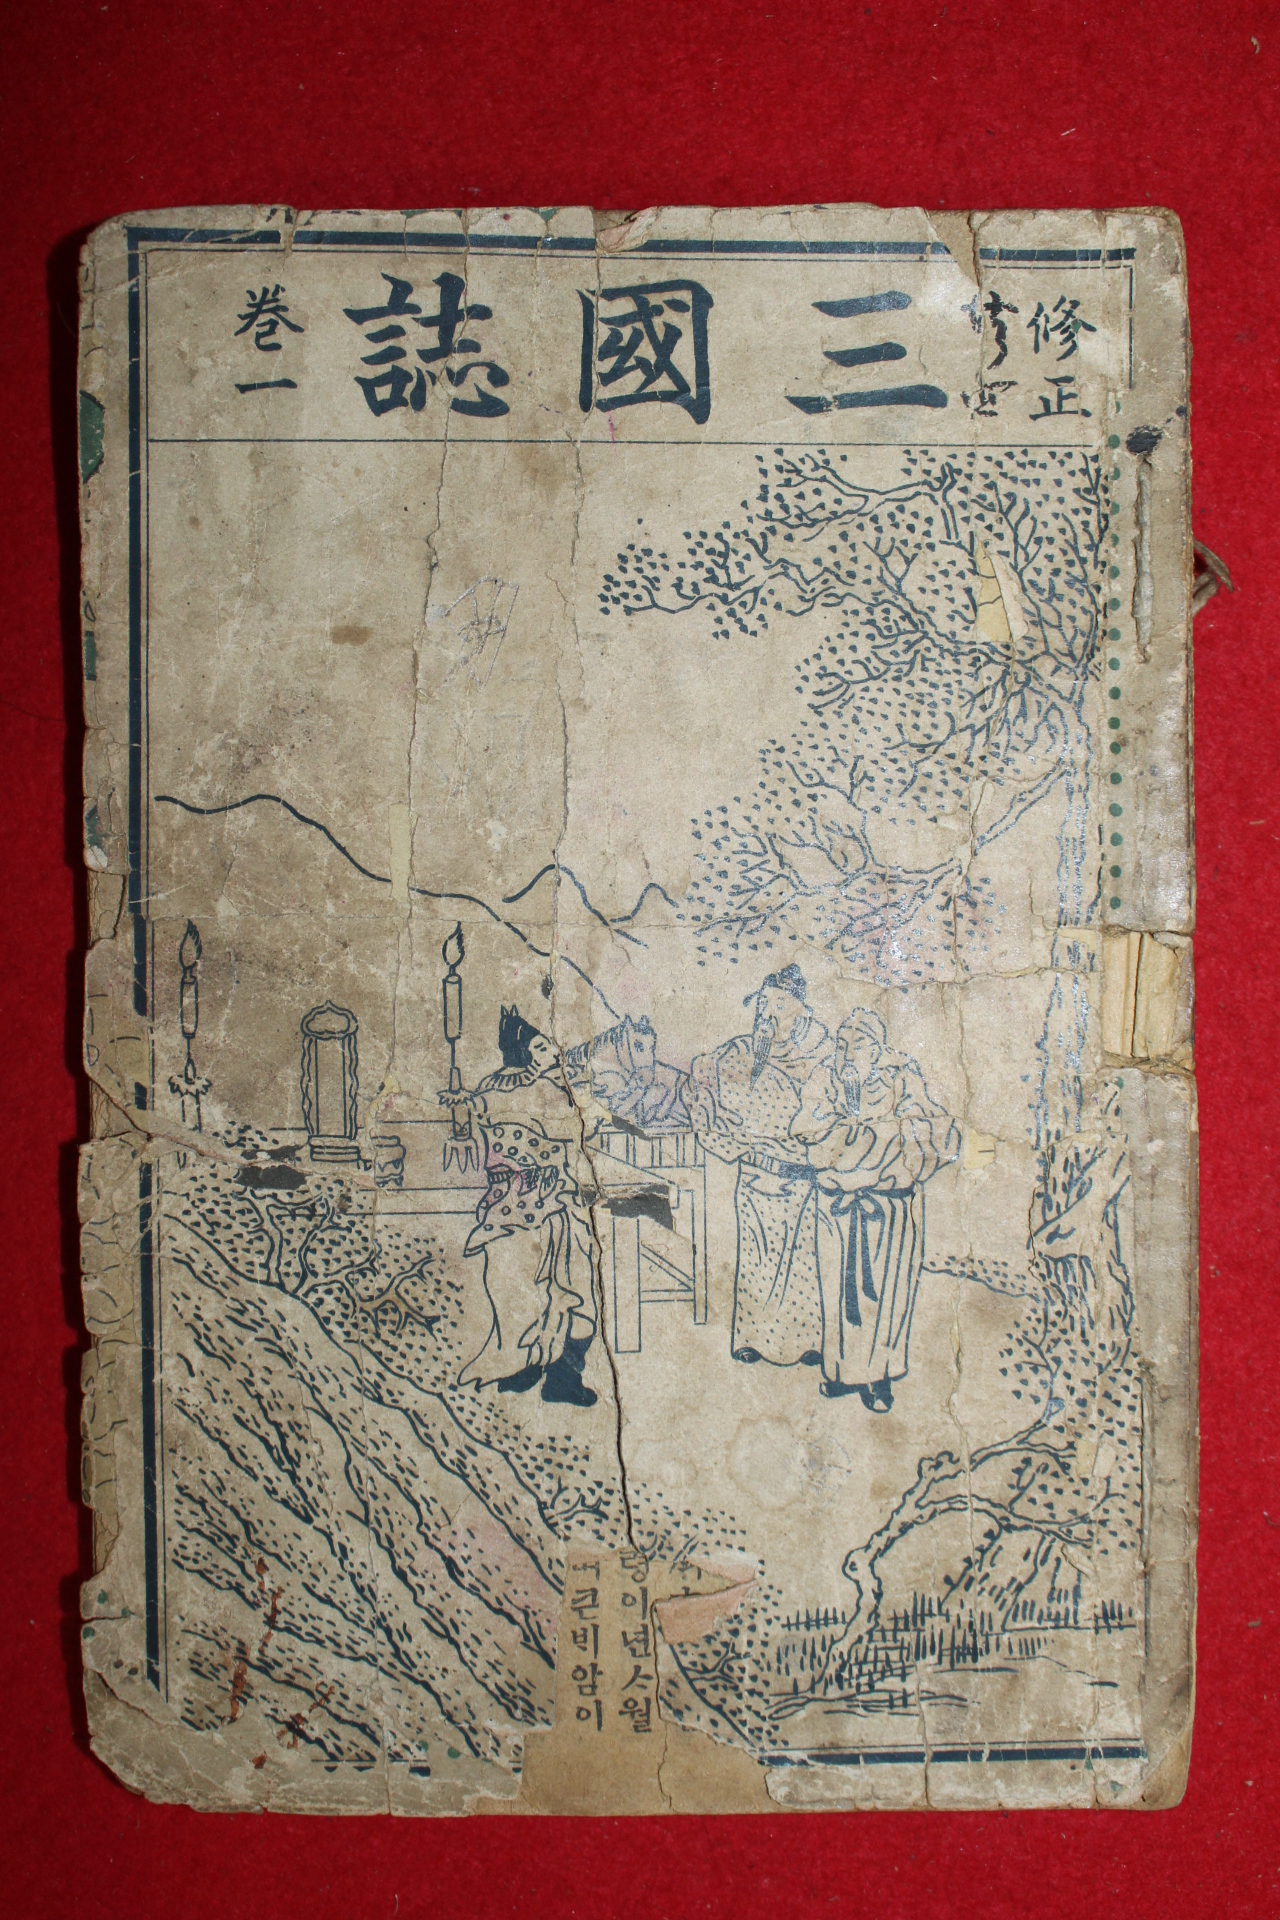 修正
三國誌
卷一
령이년ᄉ월
큰비암이